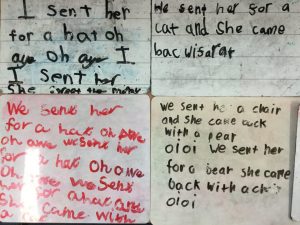 I sent her
for a hat oh
oh I
I sent her
She
We sent her for a
cat and she came
bac
We sent her
for a hat oh
oh awe we sent her
for a hat oh awe
we sent
for a hat
She came with
a
we sent he a chair
and she came back
with a pear
oioi we sent her
for a bear she came
back with a ch
oioi